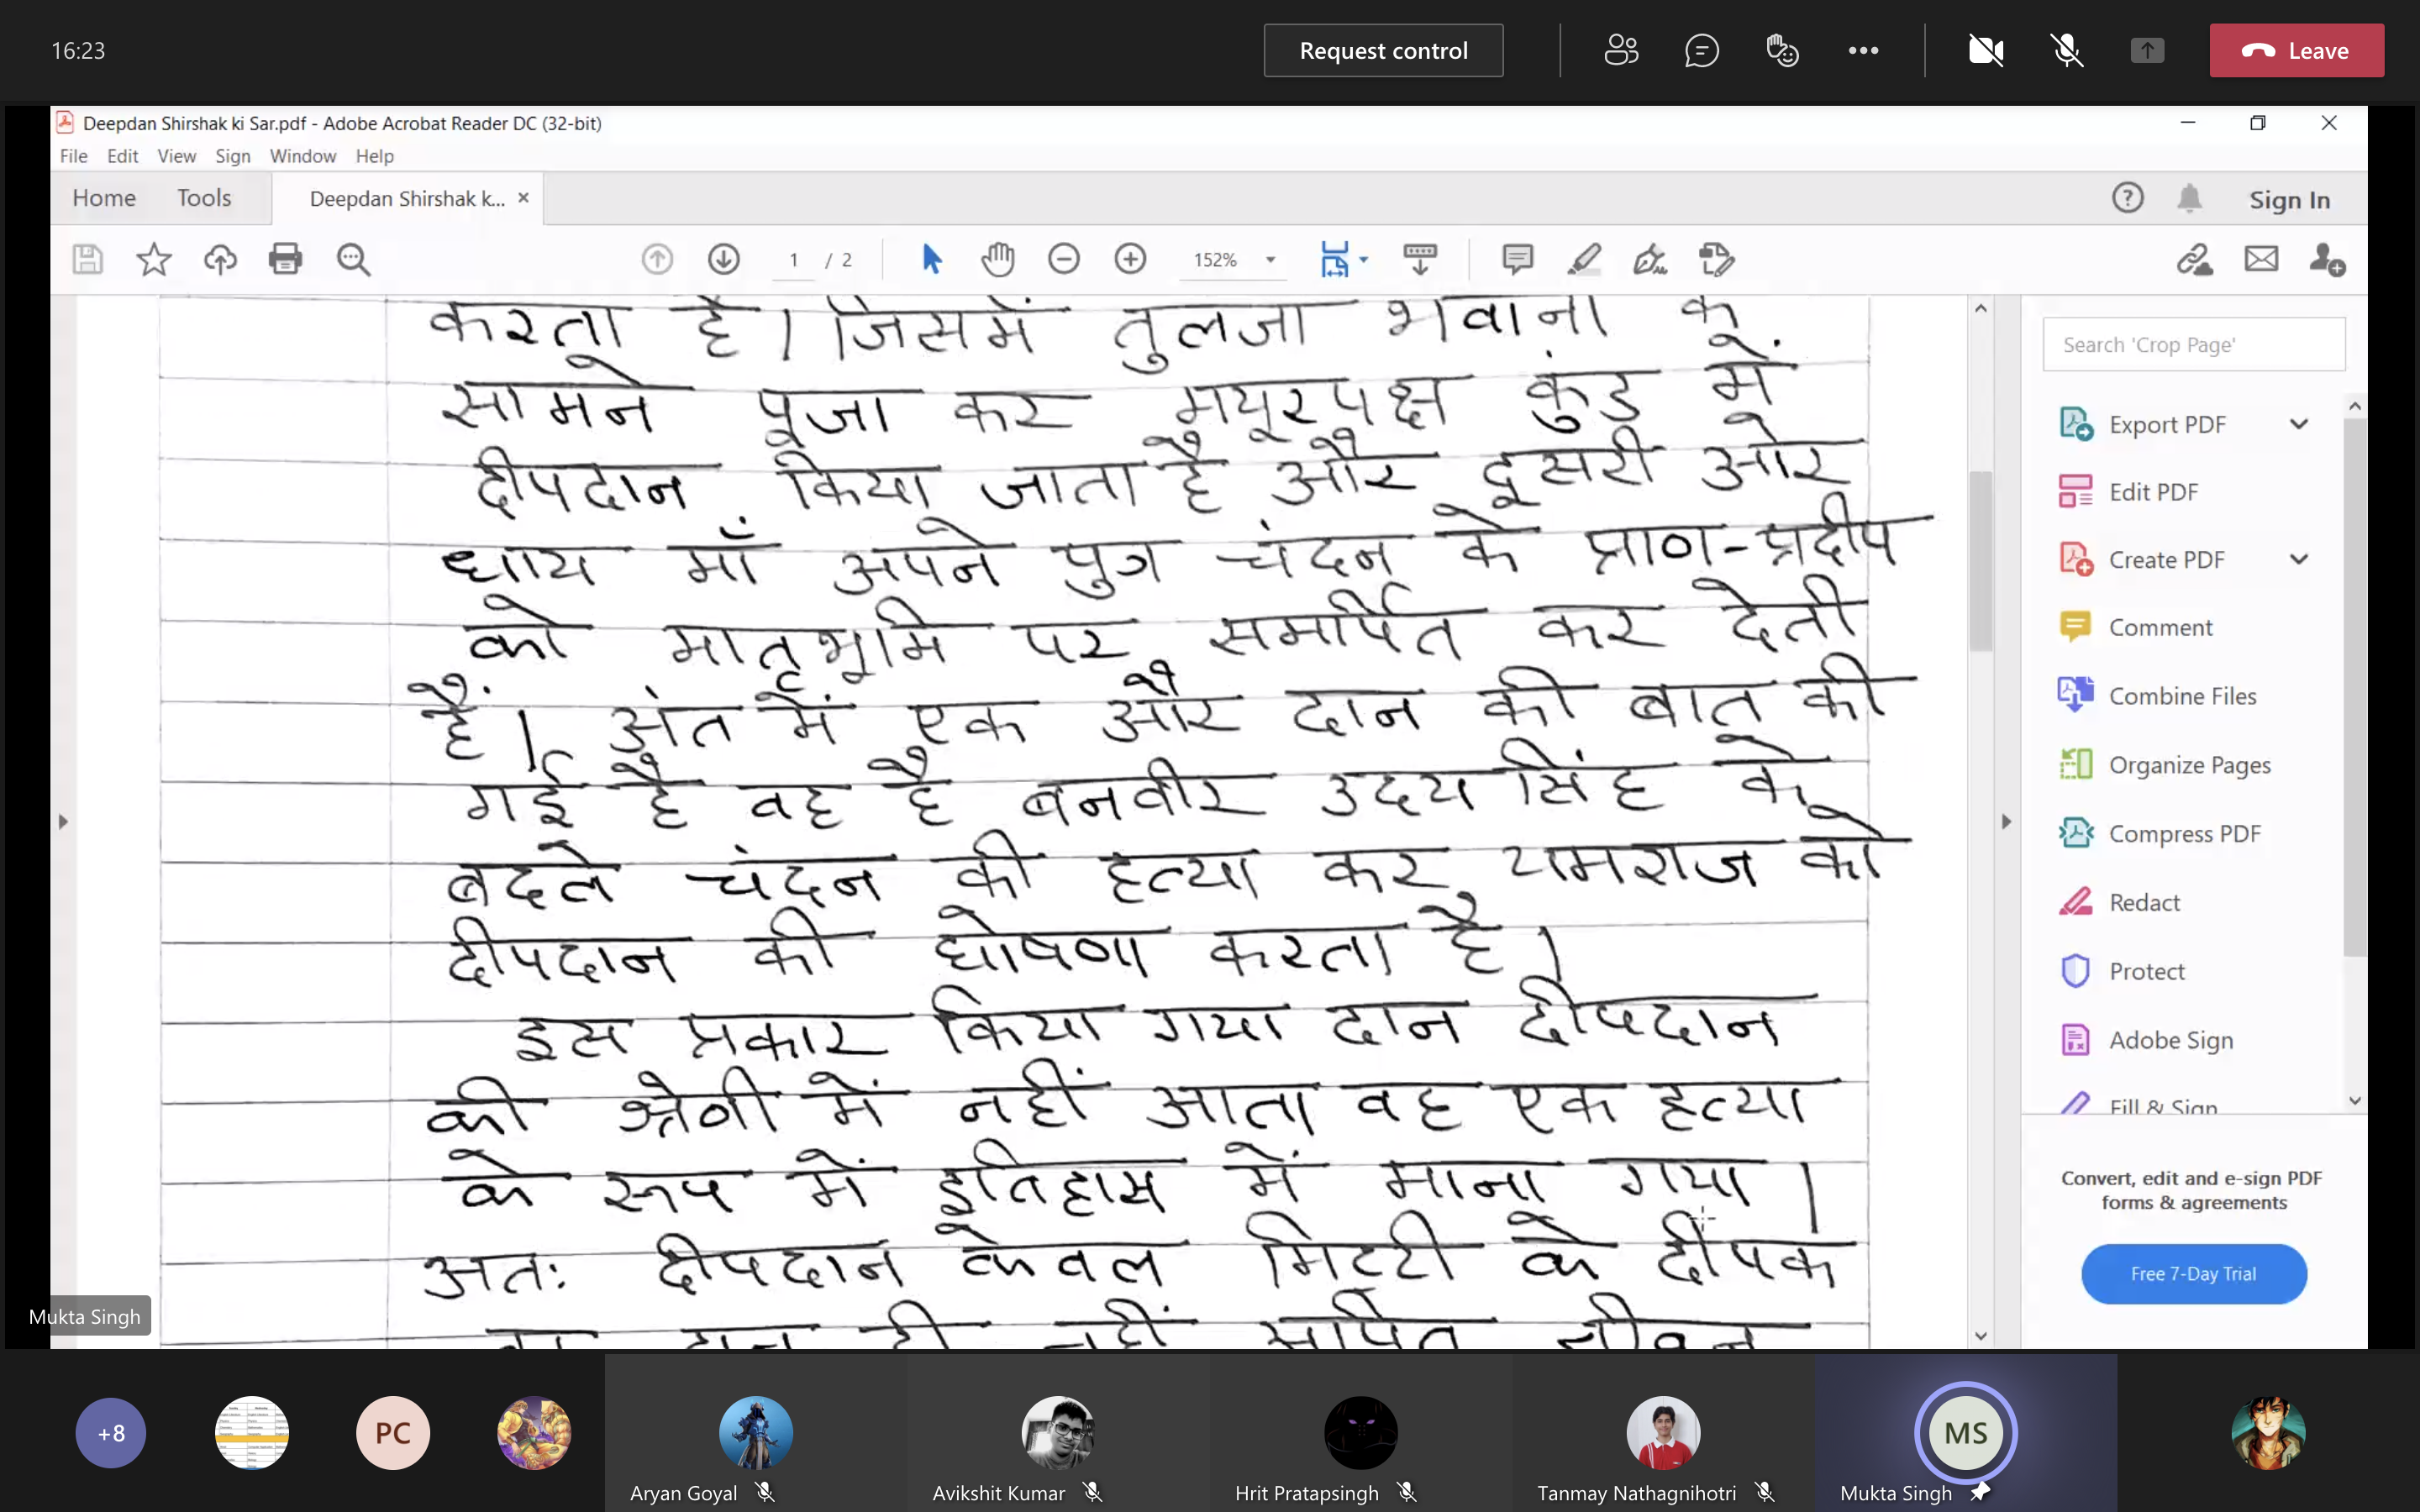 16:23
Request control
Leave
Deepdan Shirshak ki Sar.pdf - Adobe Acrobat Reader DC (32-bit)
File Edit View Sign Window Help
Home Tools Deepdan Shirshak k... ×
Sign In
1 / 2 152%
करता है। जिसमें तुलजा भवानी के
सामने पूजा कर मयूरपक्ष कुंड में
दीपदान किया जाता है और दूसरी ओर
धाय माँ अपने पुत्र चंदन के प्राण-प्रदीप
को मातृभूमि पर समर्पित कर देती
हैं। अंत में एक और दान की बात की
गई है वह है बनवीर उदय सिंह के
बदले चंदन की हत्या कर यमराज को
दीपदान की घोषणा करता है।
इस प्रकार किया गया दान दीपदान
की श्रेणी में नहीं आता वह एक हत्या
के रूप में इतिहास में माना गया।
अतः दीपदान केवल मिट्टी के दीपक
Search 'Crop Page'
Export PDF
Edit PDF
Create PDF
Comment
Combine Files
Organize Pages
Compress PDF
Redact
Protect
Adobe Sign
Fill & Sign
Convert, edit and e-sign PDF
forms & agreements
Free 7-Day Trial
Mukta Singh
+8
PC
MS
Aryan Goyal
Avikshit Kumar
Hrit Pratapsingh
Tanmay Nathagnihotri
Mukta Singh